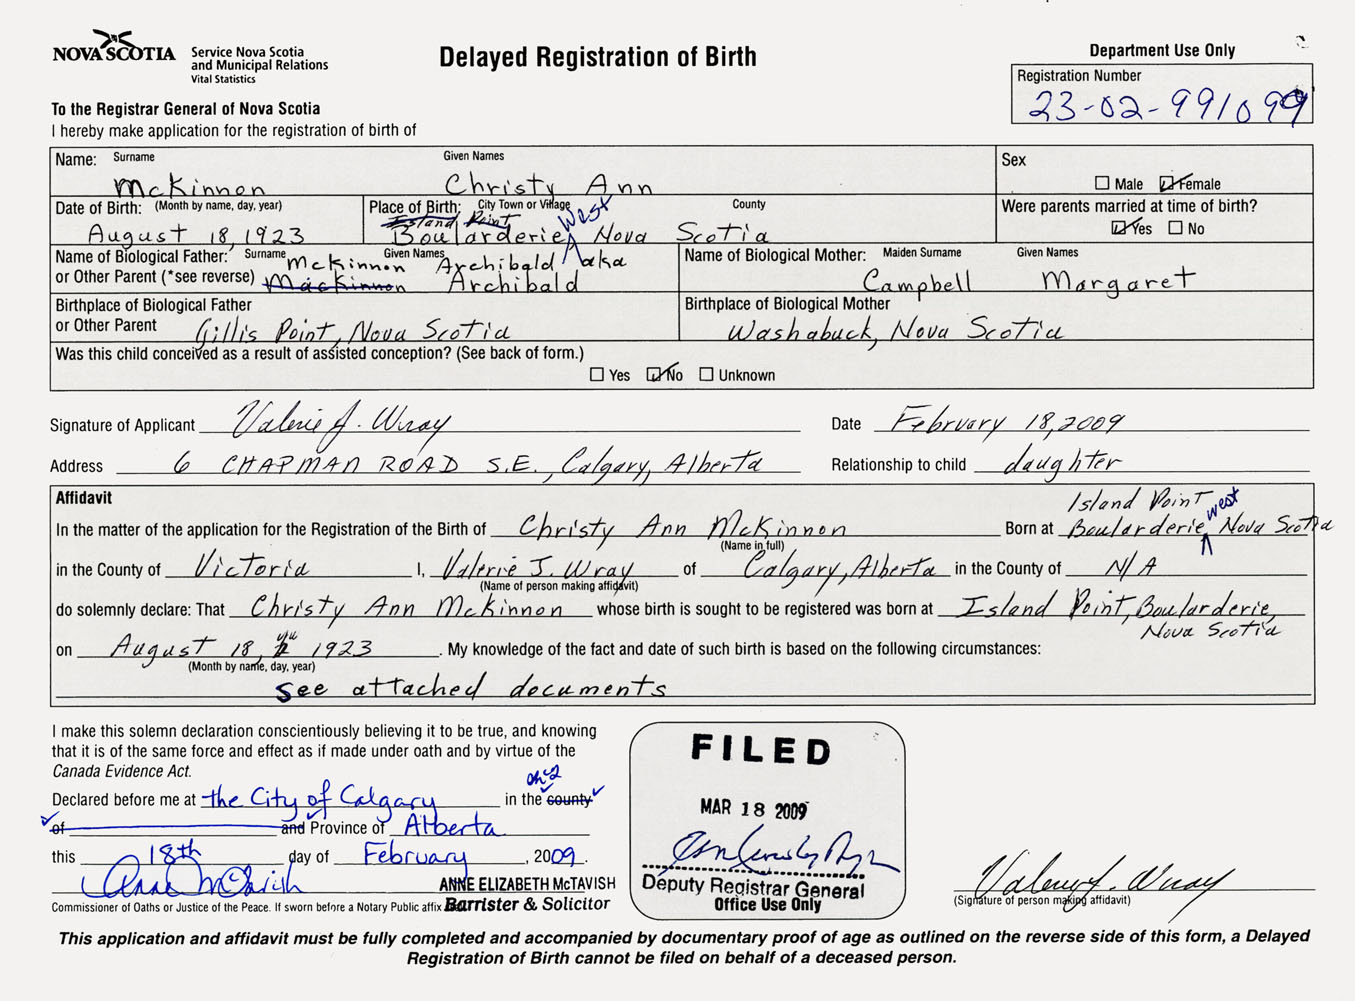 NOVA SCOTIA
Service Nova Scotia
and Municipal Relations
Vital Statistics
Delayed Registration of Birth
Department Use Only
Registration Number
23-02-991099
To the Registrar General of Nova Scotia
I hereby make application for the registration of birth of
Name: Surname Given Names
McKinnon Christy Ann
Sex
Male Female
Date of Birth: (Month by name, day, year)
August 18, 1923
Place of Birth: City Town or Village County
Island Point West
Boularderie, Nova Scotia
Were parents married at time of birth?
Yes No
Name of Biological Father: Surname Given Names
or Other Parent (*see reverse)
McKinnon Archibald aka
Mackinnon Archibald
Name of Biological Mother: Maiden Surname Given Names
Campbell Margaret
Birthplace of Biological Father
or Other Parent Gillis Point, Nova Scotia
Birthplace of Biological Mother
Washabuck, Nova Scotia
Was this child conceived as a result of assisted conception? (See back of form.)
Yes No Unknown
Signature of Applicant Valerie J. Wray
Date February 18, 2009
Address 6 CHAPMAN ROAD S.E., Calgary, Alberta
Relationship to child daughter
Affidavit
Island Point west
In the matter of the application for the Registration of the Birth of Christy Ann McKinnon Born at Boularderie, Nova Scotia
(Name in full)
in the County of Victoria I, Valerie J. Wray of Calgary, Alberta in the County of N/A
(Name of person making affidavit)
do solemnly declare: That Christy Ann McKinnon whose birth is sought to be registered was born at Island Point, Boularderie,
Nova Scotia
on August 18, 1923. My knowledge of the fact and date of such birth is based on the following circumstances:
(Month by name, day, year)
See attached documents
I make this solemn declaration conscientiously believing it to be true, and knowing
that it is of the same force and effect as if made under oath and by virtue of the
Canada Evidence Act.
Declared before me at the City of Calgary in the county
of and Province of Alberta
this 18th day of February, 2009.
ANNE ELIZABETH McTAVISH
Barrister & Solicitor
Commissioner of Oaths or Justice of the Peace. If sworn before a Notary Public affix
FILED
MAR 18 2009
Deputy Registrar General
Office Use Only
Valerie J. Wray
(Signature of person making affidavit)
This application and affidavit must be fully completed and accompanied by documentary proof of age as outlined on the reverse side of this form, a Delayed
Registration of Birth cannot be filed on behalf of a deceased person.